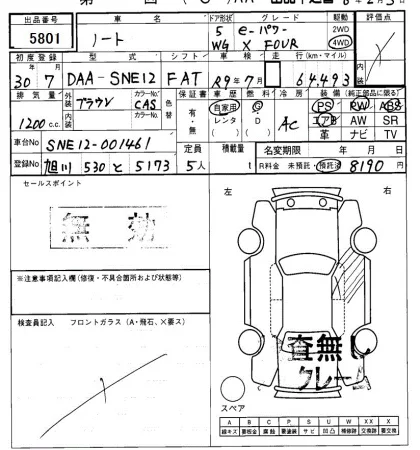 出品番号 車名 ドア形状 グレード 駆動 評価点
5801 ノート 5 e-パワー 2WD
WG X FOUR 4WD
初度登録 型式 シフト 車検 走行(km・マイル) 内装
30年7月 DAA-SNE12 FAT R9年7月 64,493
排気量 外装 カラーNo. 色替 保証書 車歴 燃料 冷房 装備(純正部品に限る)
1200c.c. ブラウン CAS 有・無 自家用 G AC PS PW ABS
内装 カラーNo. レンタ D エアB AW SR
( ) ( ) 革 ナビ TV
車台No SNE12-001461 定員 積載量 名変期限 年 月 日
登録No 旭川 530 と 5173 5人 t R料金 未預託・預託済 8190円
セールスポイント 左 右
無効
※注意事項記入欄(修復・不具合箇所および状態等)
検査員記入 フロントガラス(A・飛石、X要ス)
査無し
クレー
スペア
A B C P S U W X XX
線キズ 要板金 腐蝕 要塗装 サビ 凹凸 補修跡 交換跡 要交換